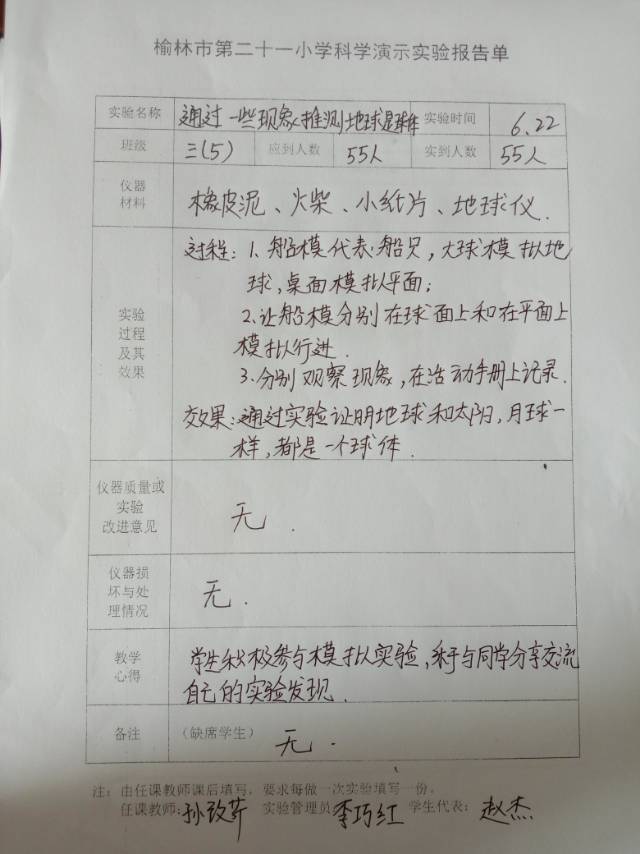 榆林市第二十一小学科学演示实验报告单
实验名称 通过一些现象推测地球是球体 实验时间 6.22
班级 三(5) 应到人数 55人 实到人数 55人
仪器
材料
橡皮泥、火柴、小纸片、地球仪.
实验
过程
及其
效果
过程:1、船模代表船只,大球模拟地
球,桌面模拟平面;
2.让船模分别在球面上和在平面上
模拟行进.
3.分别观察现象,在活动手册上记录.
效果:通过实验证明地球和太阳,月球一
样,都是一个球体.
仪器质量或
实验
改进意见
无.
仪器损
坏与处
理情况
无.
教学
心得
学生积极参与模拟实验,乐于与同学分享交流
自己的实验发现.
备注 (缺席学生) 无.
注:由任课教师课后填写,要求每做一次实验填写一份。
任课教师:孙改芹 实验管理员 李巧红 学生代表:赵杰